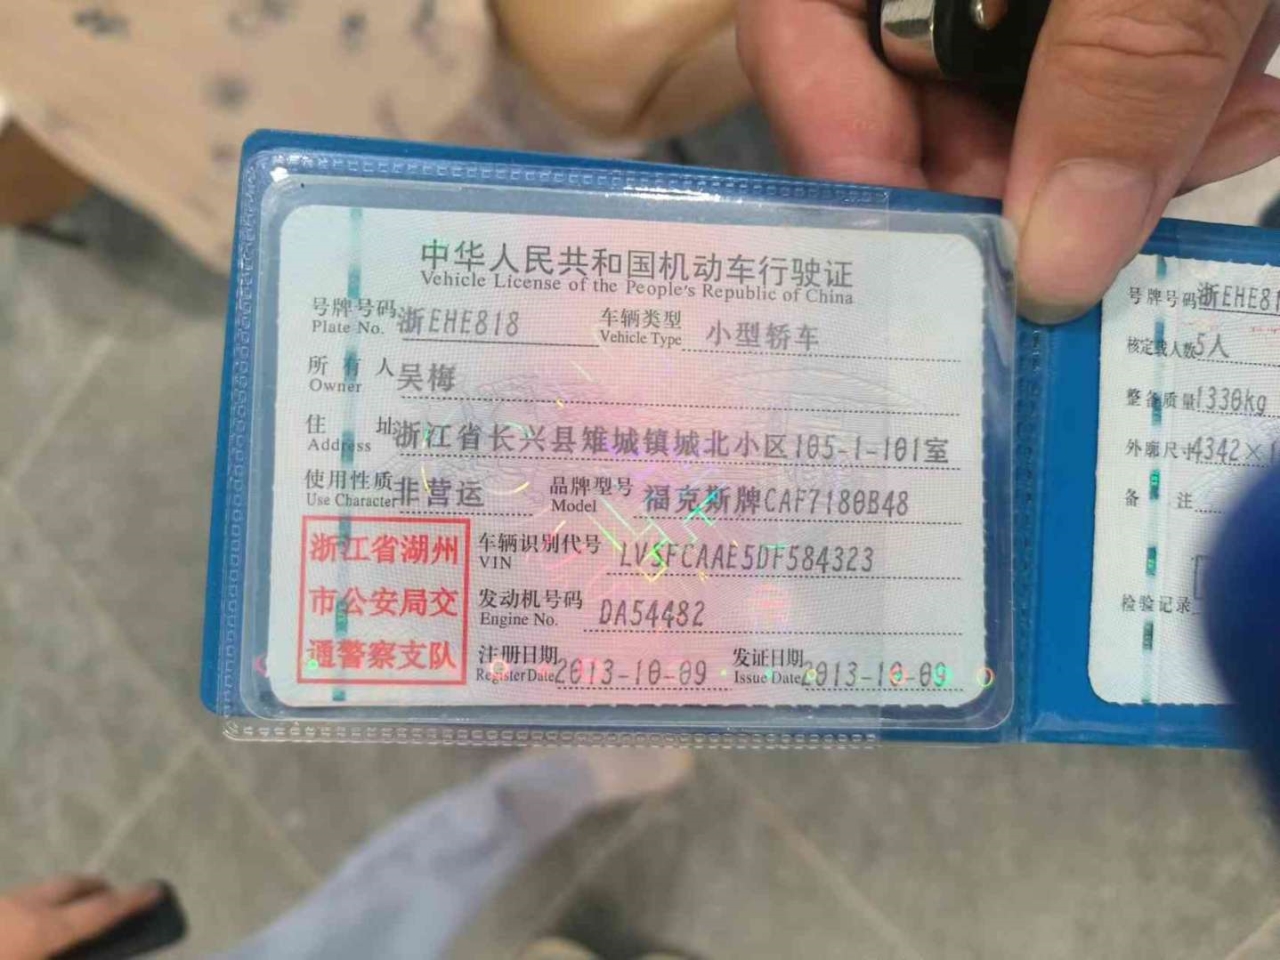 中华人民共和国机动车行驶证
Vehicle License of the People's Republic of China
号牌号码 浙EHE818 车辆类型 小型轿车
Plate No. Vehicle Type
所有人 吴梅
Owner
住址 浙江省长兴县雉城镇城北小区105-1-101室
Address
使用性质 非营运 品牌型号 福克斯牌CAF7180B48
Use Character Model
浙江省湖州
市公安局交
通警察支队
车辆识别代号 LVSFCAAE5DF584323
VIN
发动机号码 DA54482
Engine No.
注册日期 2013-10-09 发证日期 2013-10-09
Register Date Issue Date
号牌号码 浙EHE81
核定载人数 5人
整备质量 1330kg
外廓尺寸 4342×
备注
检验记录